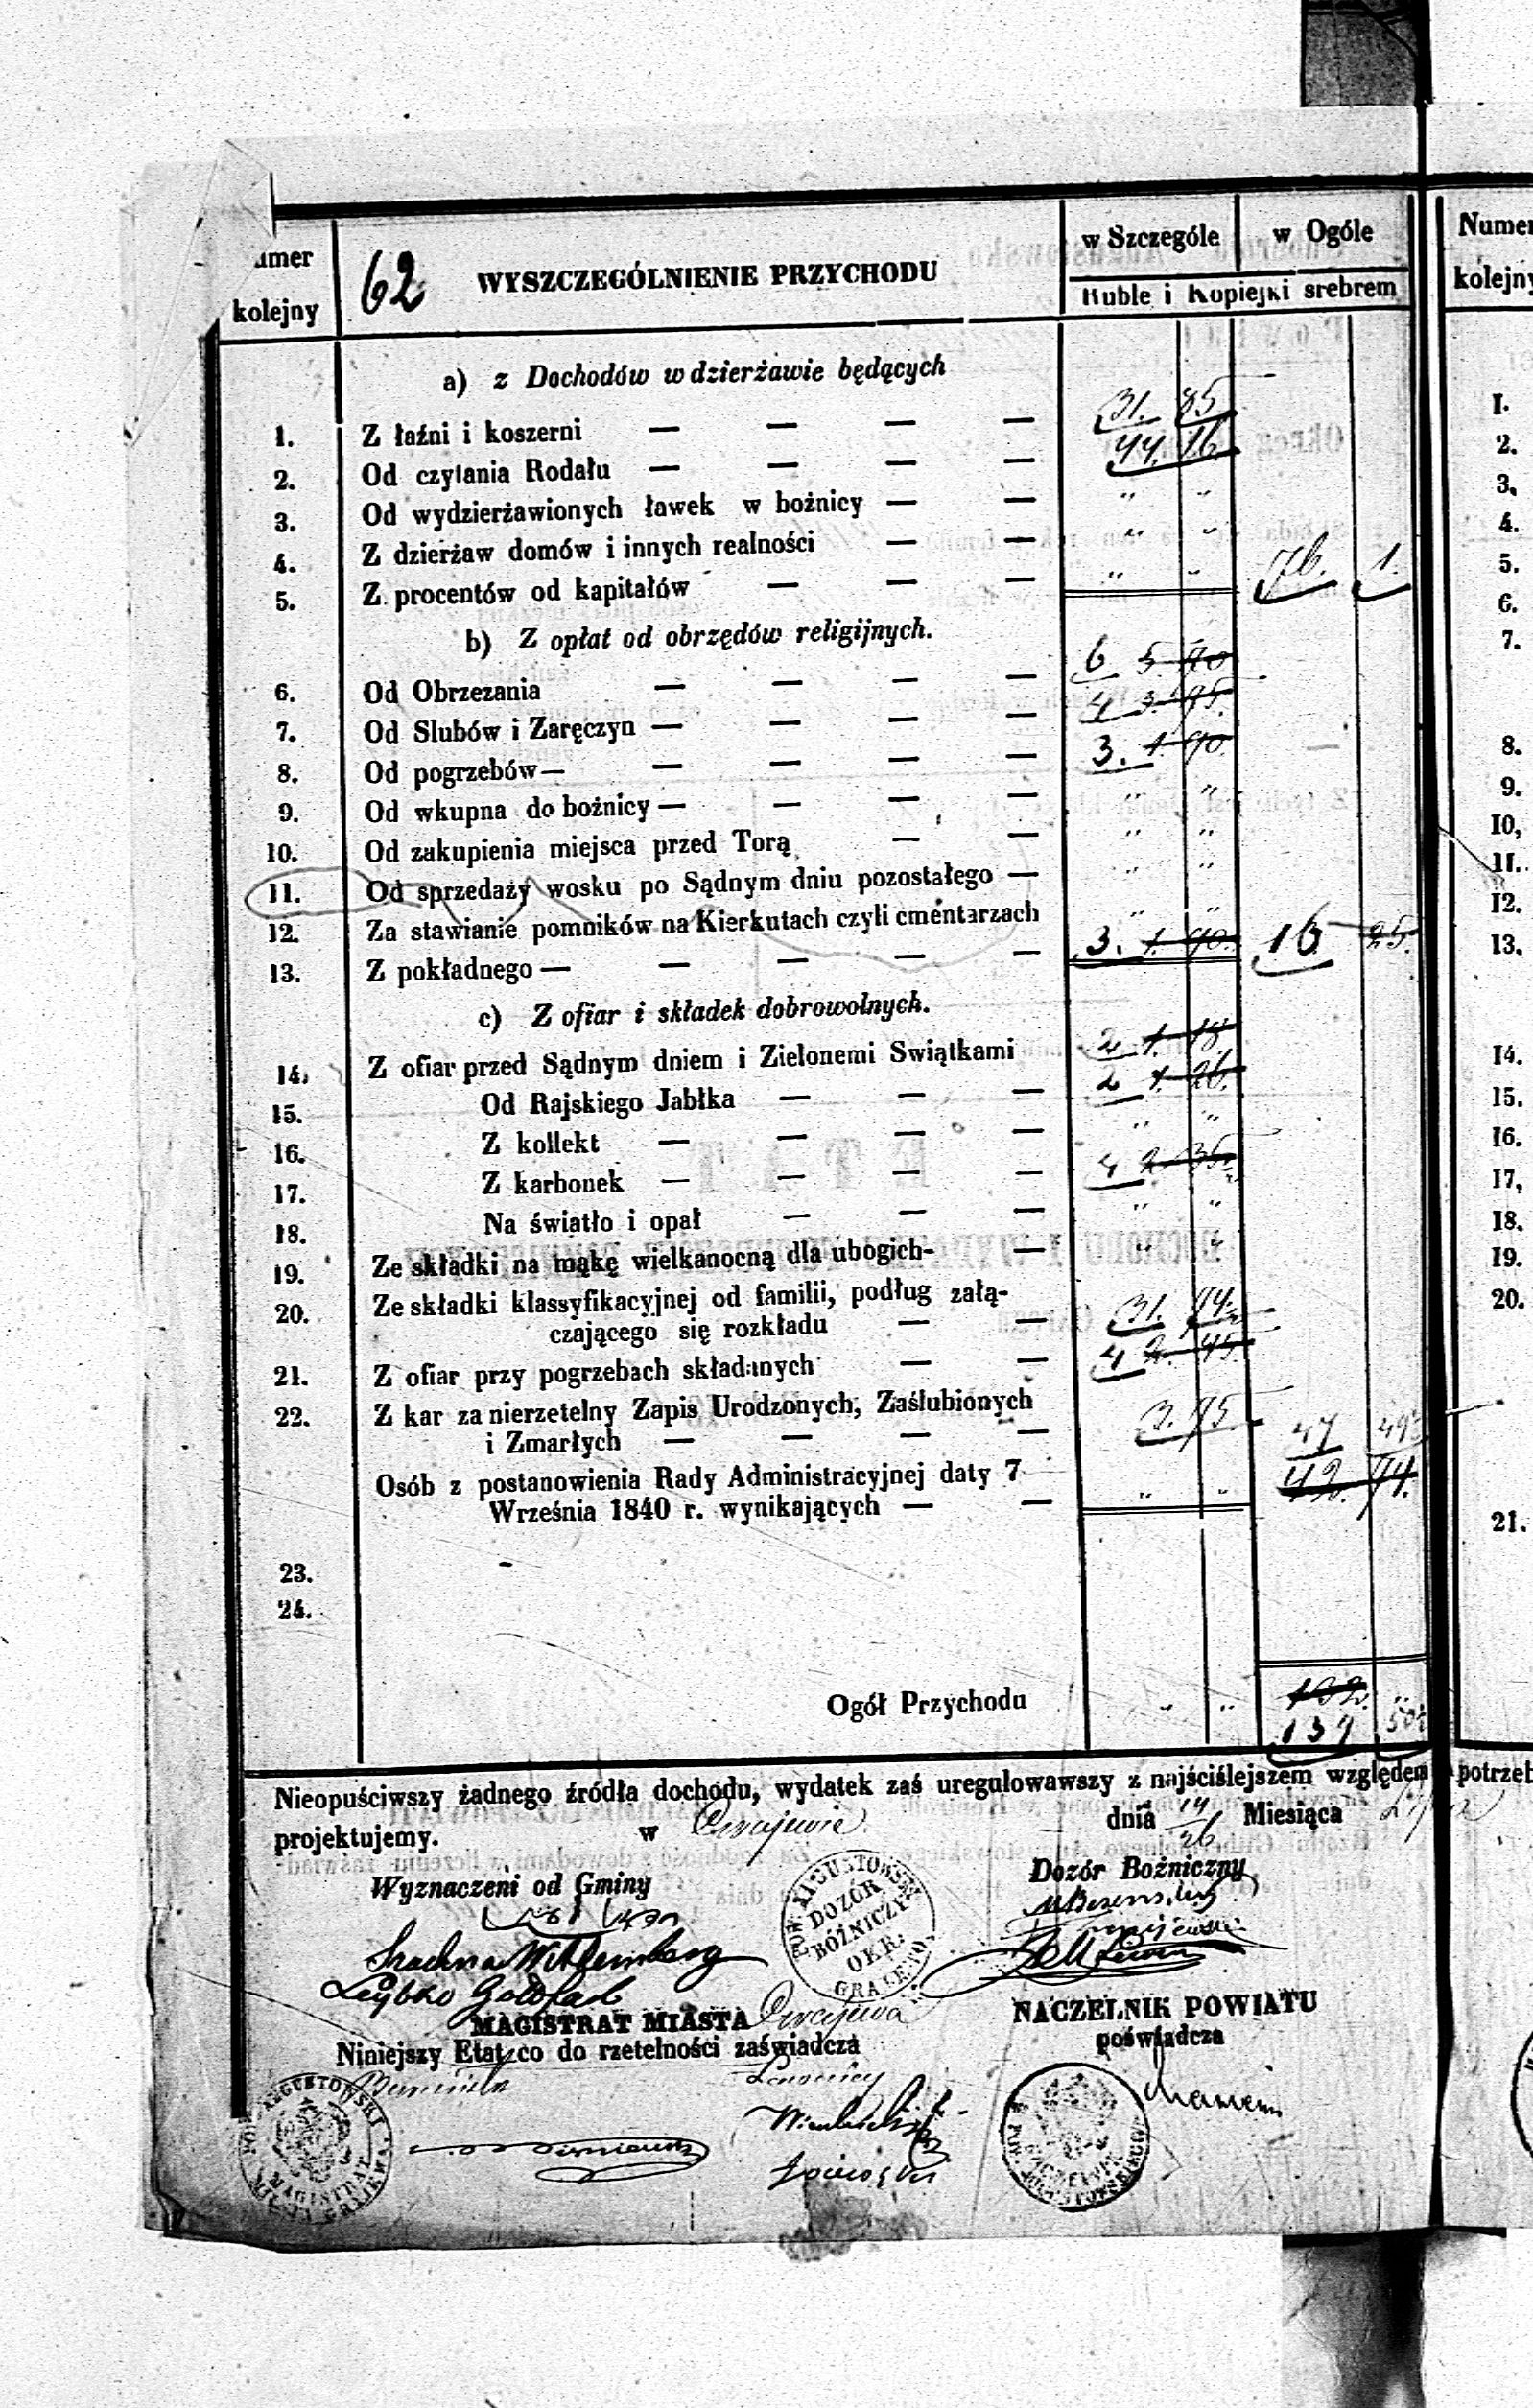 umer kolejny
62 WYSZCZEGÓLNIENIE PRZYCHODU
w Szczególe w Ogóle
Ruble i Kopiejki srebrem
Numer kolejny
a) z Dochodów w dzierżawie będących
1. Z łaźni i koszerni — — — — 31. 85
2. Od czytania Rodału — — — — 44. 16.
3. Od wydzierżawionych ławek w bożnicy — — " "
4. Z dzierżaw domów i innych realności — — " "
5. Z procentów od kapitałów — — — " " 76. 1.
b) Z opłat od obrzędów religijnych.
6. Od Obrzezania — — — — 6 5 40
7. Od Slubów i Zaręczyn — — — — 4 3. 75.
8. Od pogrzebów — — — — — 3. 1. 90
9. Od wkupna do bożnicy — — — — " "
10. Od zakupienia miejsca przed Torą — — " "
11. Od sprzedaży wosku po Sądnym dniu pozostałego — " "
12. Za stawianie pomników na Kierkutach czyli cmentarzach " "
13. Z pokładnego — — — — — 3. 1. 90. 16 25.
c) Z ofiar i składek dobrowolnych.
14. Z ofiar przed Sądnym dniem i Zielonemi Swiątkami 2 1. 18.
15. Od Rajskiego Jabłka — — — 2 1. 26.
16. Z kollekt — — — — " "
17. Z karbonek — — — — 4 2 35
18. Na światło i opał — — — " "
19. Ze składki na mąkę wielkanocną dla ubogich- — " "
20. Ze składki klassyfikacyjnej od familii, podług załą-
czającego się rozkładu — — 31. 74
21. Z ofiar przy pogrzebach składanych — — 4 2. 45.
22. Z kar za nierzetelny Zapis Urodzonych, Zaślubionych
i Zmarłych — — — — 3. 75 47 49
Osób z postanowienia Rady Administracyjnej daty 7 42. 74.
Września 1840 r. wynikających — — " "
23.
24.
Ogół Przychodu " " 132. "
139 50
1.
2.
3.
4.
5.
6.
7.
8.
9.
10,
11.
12.
13.
14.
15.
16.
17,
18.
19.
20.
21.
Nieopuściwszy żadnego źródła dochodu, wydatek zaś uregulowawszy z najściślejszem względem potrzeb
projektujemy. w Grajewie dnia 14/26 Miesiąca Lipca
Wyznaczeni od Gminy
Dozór Bożniczny
Leybko Goldfarb
POW. AUGUSTOWSKI DOZÓR BÓŻNICZY OKR. GRAJEWO
MAGISTRAT MIASTA Grajewa
Niniejszy Etat co do rzetelności zaświadcza
NACZELNIK POWIATU
poświadcza
Burmistrz
Ławnicy
POW. AUGUSTOWSKI MAGISTRAT MIASTA GRAJEWA